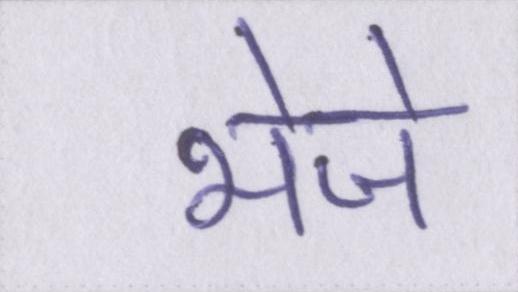 भेजे